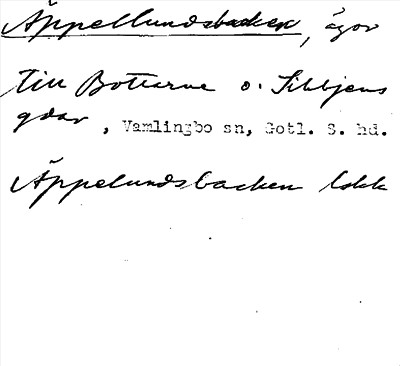 Äppellundsbacken, ägor
till Bottarve o. Sibbjens
gdar, Vamlingbo sn, Gotl. S. hd.
Äppelundsbacken lokk